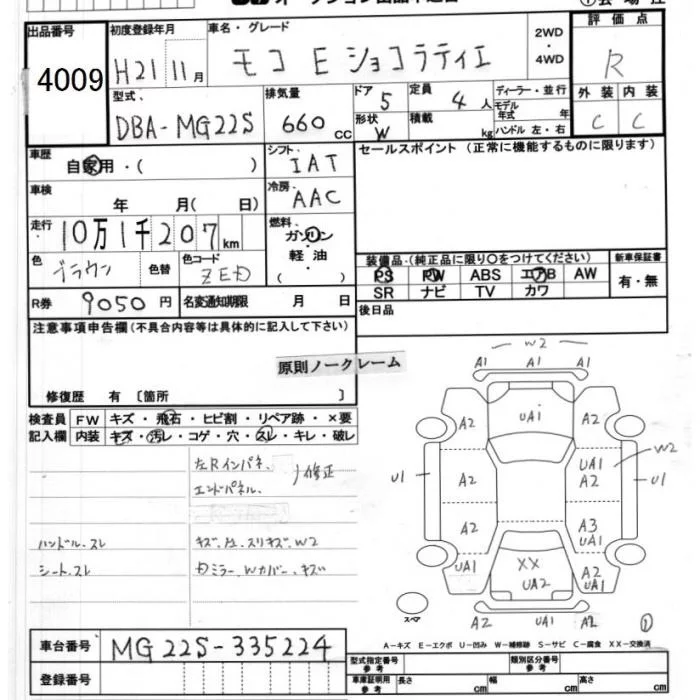 ①会場控
出品番号
4009
初度登録年月
H21 11月
車名・グレード
モコ E ショコラティエ
2WD
・
4WD
評価点
R
型式.
DBA-MG22S
排気量
660 cc
ドア 5
形状 W
定員 4 人
積載 kg
ディーラー・並行
モデル年式 年
ハンドル 左・右
外装 内装
C C
車歴
自家用・( )
シフト.
IAT
セールスポイント (正常に機能するものに限ります)
車検
年 月( 日)
冷房.
AAC
走行
10万1千207km
燃料.
ガソリン
・
軽油
( )
色
ブラウン
色替
色コード
ZED
装備品・(純正品に限り○をつけてください)
PS PW ABS エアB AW
SR ナビ TV カワ
新車保証書
有・無
R券 9050円
名変通知期限 月 日
後日品
注意事項申告欄(不具合内容等は具体的に記入して下さい)
原則ノークレーム
修復歴 有 〔箇所 〕
検査員
記入欄
FW キズ・飛石・ヒビ割・リペア跡・×要
内装 キズ・汚レ・コゲ・穴・スレ・キレ・破レ
左Rインパネ、
エンドパネル、
修正
ハンドル.スレ
シート.スレ
キズ.A1.スリキズ.W2
ミラー.Wカバー.キズ
W2
A1 A1 A1
UA1
A2 A2
U1
A2
UA1
A2
W2
U1
A2
A3
UA1
UA1
XX
UA2
A2
UA1
スペア
A2 UA1 A2
①
A-キズ E-エクボ U-凹み W-補修跡 S-サビ C-腐食 XX-交換済
車台番号 MG22S-335224
登録番号
型式指定番号
参考
類別区分番号
参考
車庫証明用
参考
長さ cm 幅 cm 高さ cm